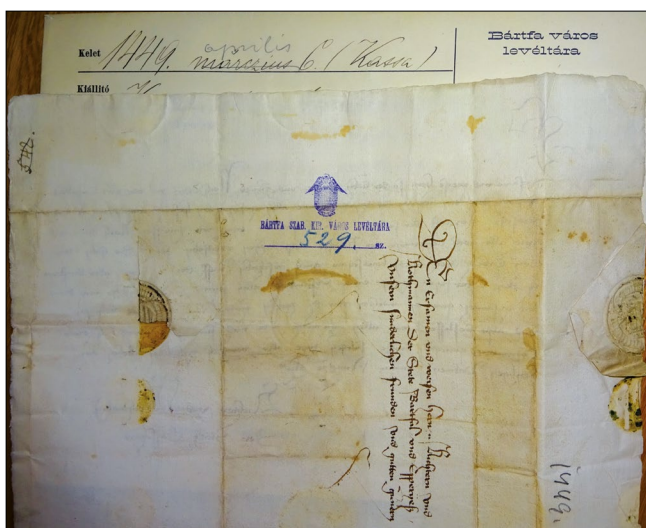 Kelet 1449. április
marczius 6. (Kassa)
Bártfa város
levéltára
Kiállító
548.
BÁRTFA SZAB. KIR. VÁROS LEVÉLTÁRA
529. SZ.
Den Ersamen vnd weisen herren Richtern vnd
Rothmannen Der Stete Bartfal vnd Epperyes
Vnsern sunderlichen frunden vnd guten gunnern
1449.